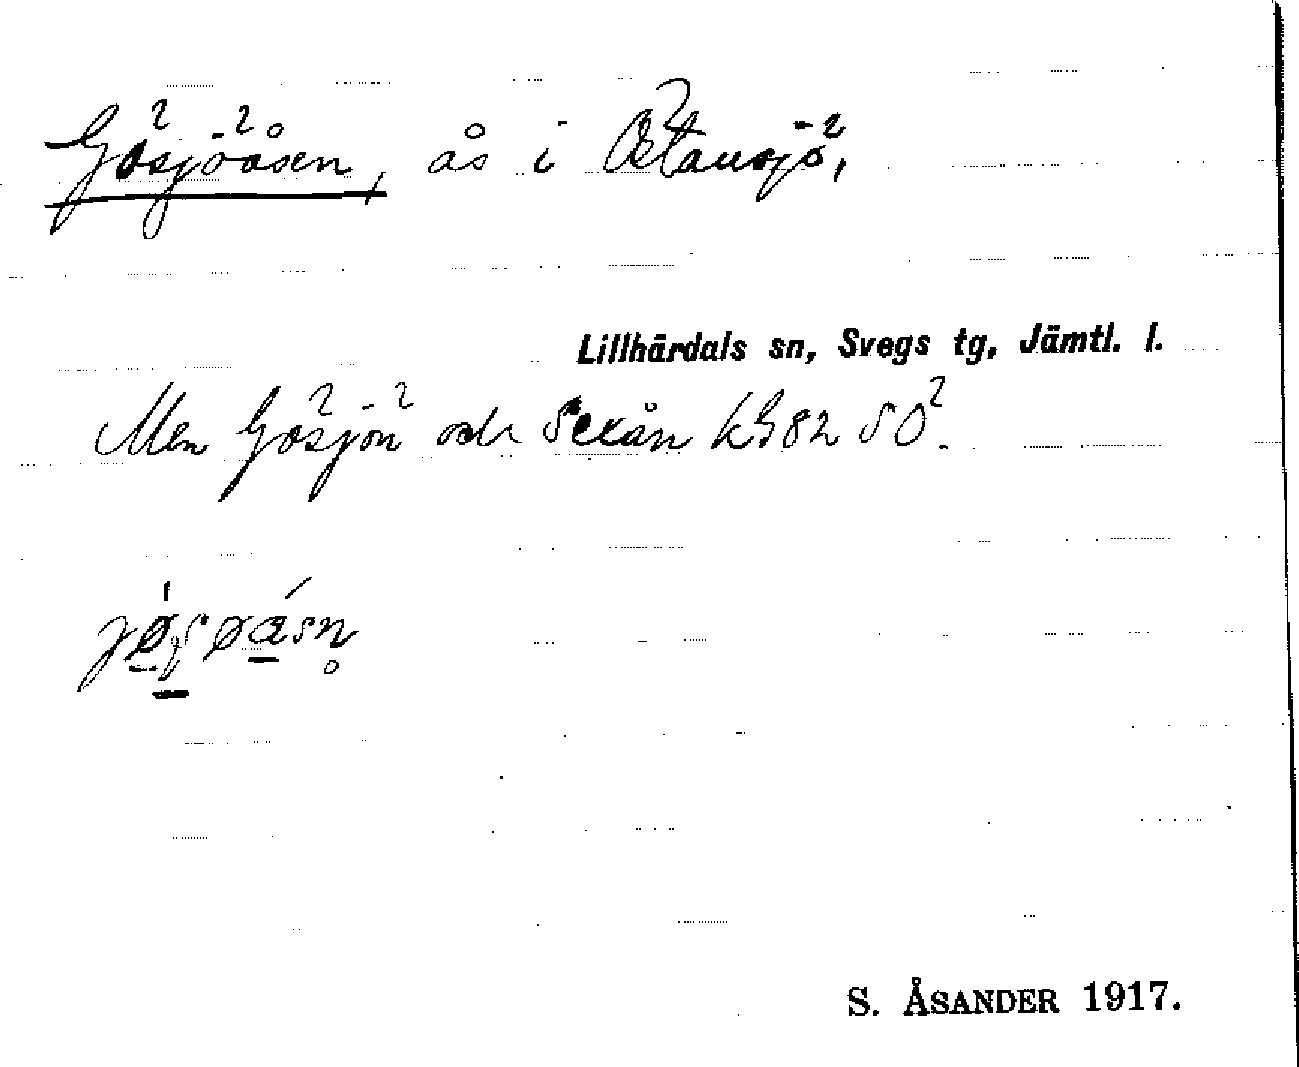 Gösjöåsen, ås i Östansjö,
Lillhärdals sn, Svegs tg, Jämtl. l.
Men Gösjön och Sexån kG82 SÖ.
S. ÅSANDER 1917.